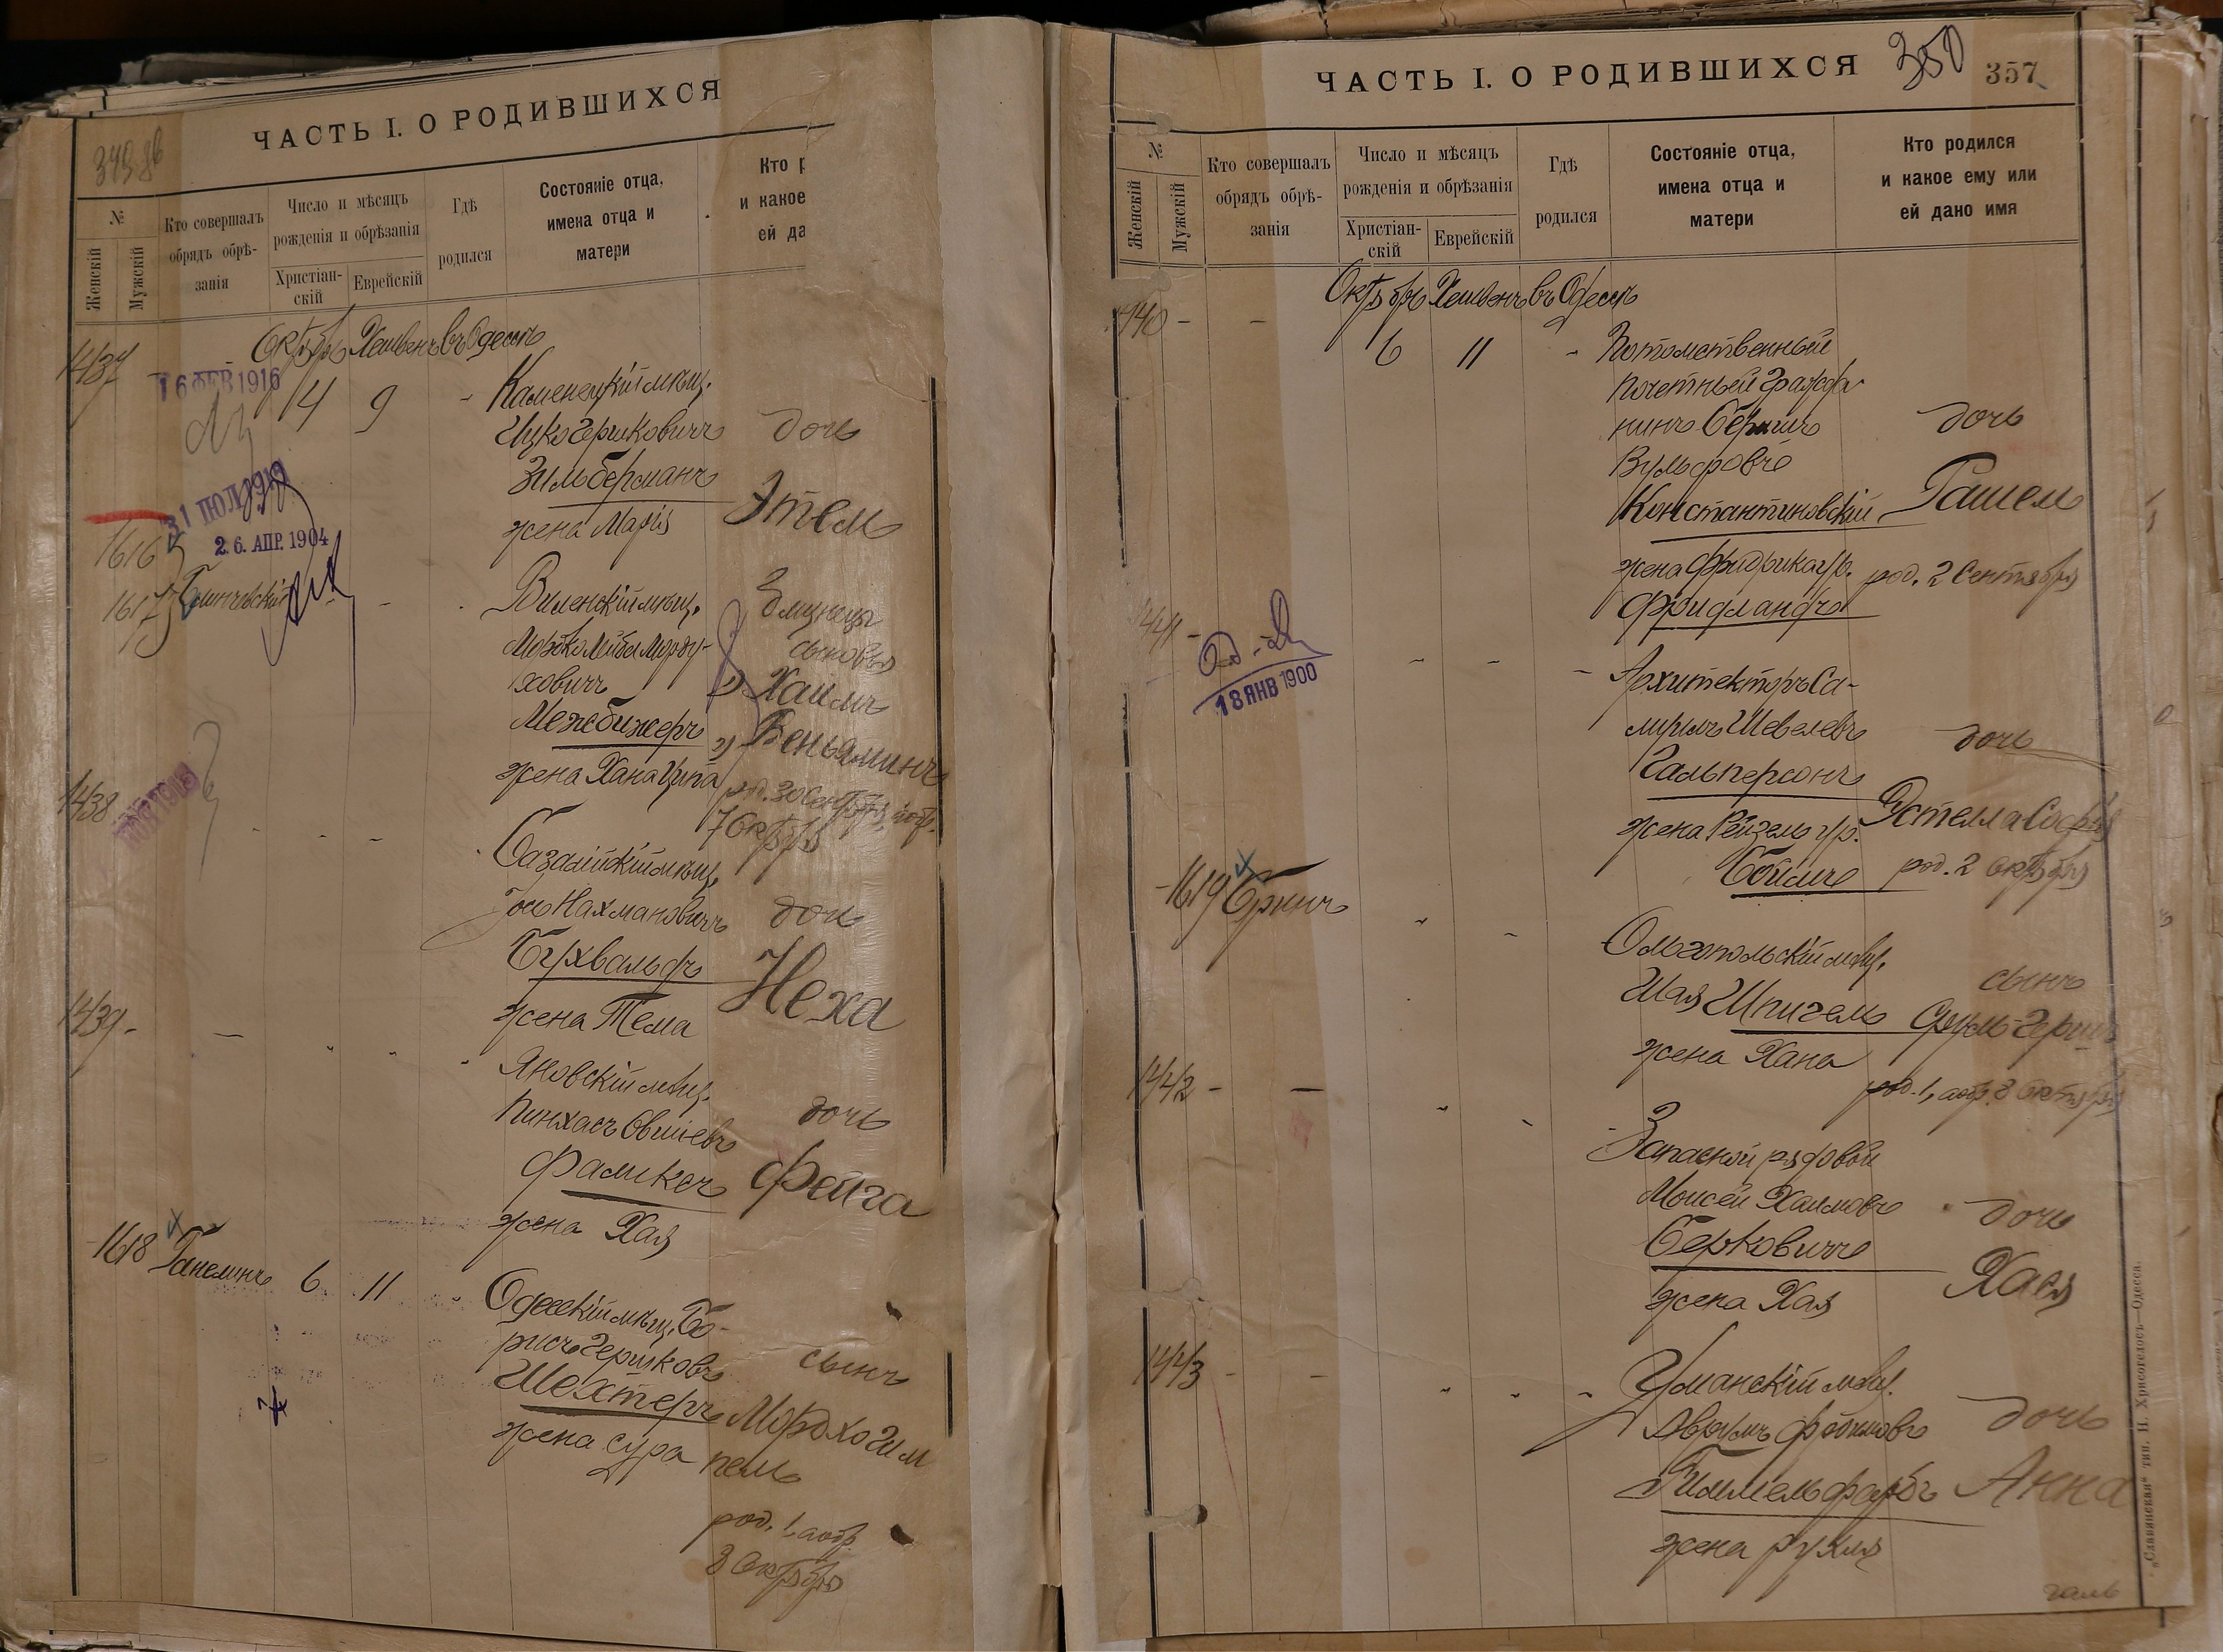 ЧАСТЬ I. О РОДИВШИХСЯ
№
Женскій
Мужскій
Кто совершалъ
обрядъ обрѣ-
занія
Число и мѣсяцъ
рожденія и обрѣзанія
Христіан-
скій
Еврейскій
Гдѣ
родился
Состояніе отца,
имена отца и
матери
Кто р
и какое
ей да
Октября Хешвенъ въ Одессѣ
1437
16 ФЕВ 1916
4 9
Каменецкій мѣщ.
Ицко Гершковичъ
Зильберманъ
жена Марія
дочь
Этель
1616
1617
26. АПР. 1904
Виленскій мѣщ.
Мордко Лейба Морду-
ховичъ
Межбижеръ
жена Хана Ципа
близнецы
сыновья
1) Хаимъ
2) Веньяминъ
род. 30 Сентября, а обр.
7 Октября
1438
мѣщ.
Нахмановичъ
Бухвальдъ
жена Тема
дочь
Неха
1439 -
Яновскій мѣщ.
Пинхасъ Овшіевъ
Фаликъ
жена Хая
дочь
Фейга
1618 Ганелинъ 6 11
Одесскій мѣщ. Бо-
рисъ Гершковъ
Шехтеръ
жена Сура
сынъ
Мордхо Гим
пель
род. 1, а обр.
8 Октября
ЧАСТЬ I. О РОДИВШИХСЯ
350 357
№
Женскій
Мужскій
Кто совершалъ
обрядъ обрѣ-
занія
Число и мѣсяцъ
рожденія и обрѣзанія
Христіан-
скій
Еврейскій
Гдѣ
родился
Состояніе отца,
имена отца и
матери
Кто родился
и какое ему или
ей дано имя
Октября Хешвенъ въ Одессѣ
1440 - -
6 11
Потомственный
почетный гражда
нинъ
Вульфовъ
Константиновскій
жена Фридрика ур.
Фридландъ
дочь
Рашель
род. 2 Сентября
1441 -
18 ЯНВ 1900
Архитекторъ Са-
муилъ Шевелевъ
Гальперсонъ
жена Рейзель ур.
дочь
Эстелла Софія
род. 2 Октября
1619 Бринъ
Ольгопольскій мѣщ.
Шая Шпигель
жена Хана
сынъ
Сруль-Гершъ
род. 1, а обр. 8 Октября
1442 - -
Запасной рядовой
Моисей Хаимовъ
Берковичъ
жена Хая
дочь
Хася
1443 - -
Уманскій мѣщ.
Аврумъ
Гиммельфарбъ
жена Рухля
дочь
Анна
„Славянская“ тип. Н. Хрисогелосъ—Одесса.